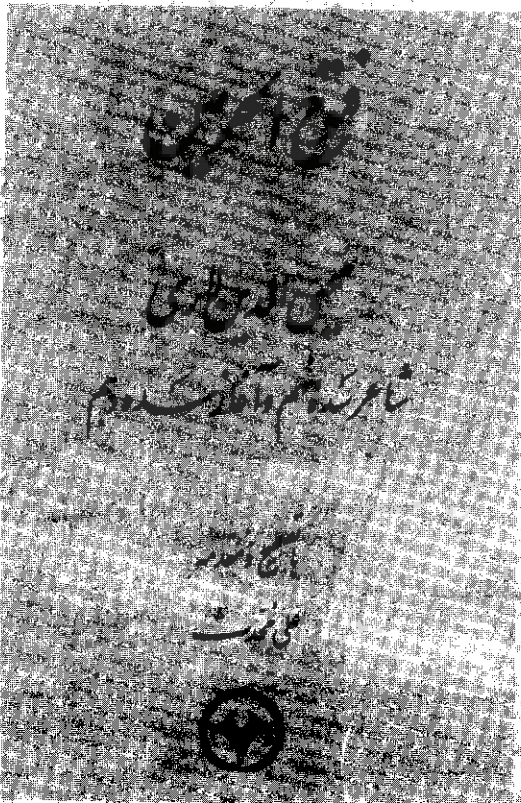 فتوح الحرمین
محیی الدین لاری
شاعر سده نهم و آغاز سده دهم
تصحیح و مقدمه
علی محدث